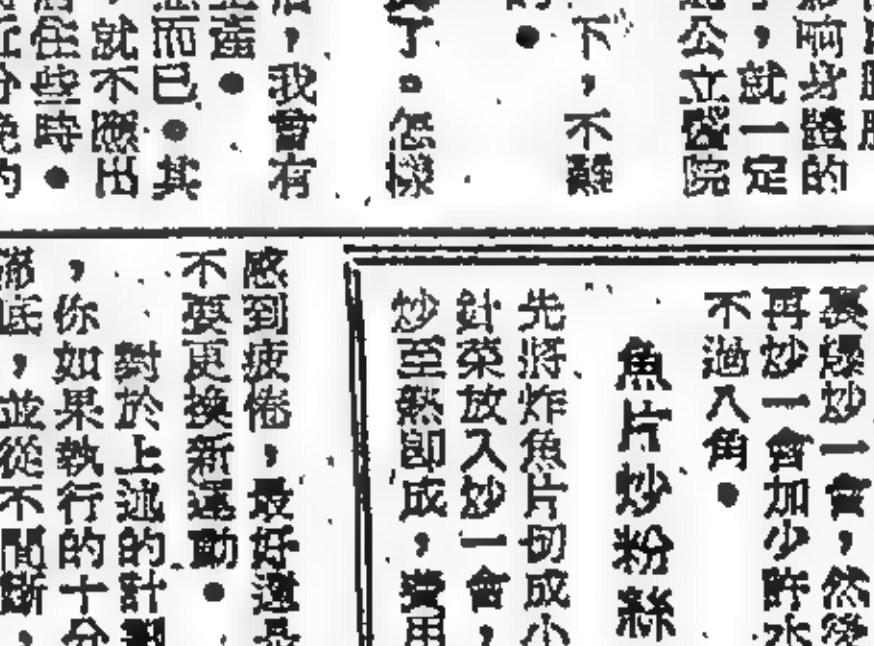 影响身體的
，就一定
公立醫院
下，不難
了。怎樣
，我會有
生產●
而已●其
就不應出
住些時●
裏爆炒一會，然後
再炒一會加少許水
不過八角●
魚片炒粉絲
先將炸魚片切成小
針菜放入炒一會，
炒至熟即成，費用
感到疲倦，最好還是
不要更換新運動●
對於上述的計劃
，你如果執行的十分
徹底，並從不間斷，